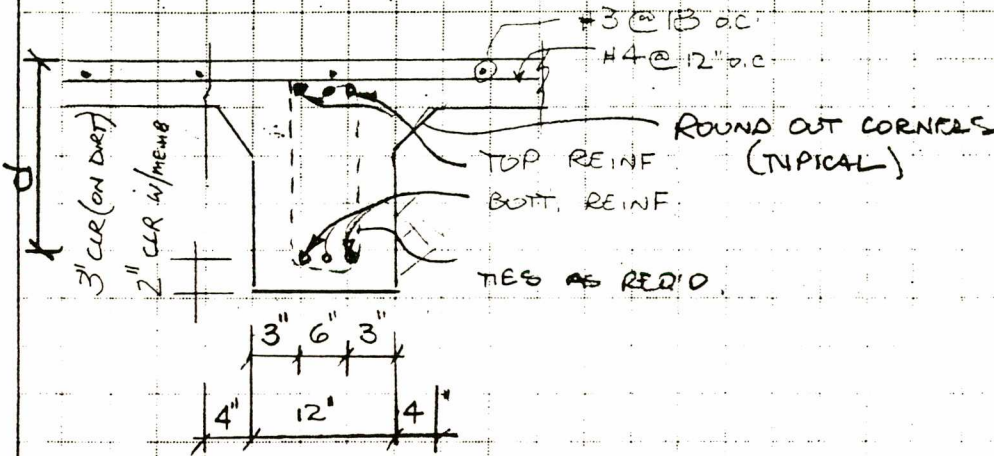 #3 @ 18 o.c.
#4 @ 12" o.c.
ROUND OUT CORNERS
(TYPICAL)
TOP REINF
BOTT. REINF.
TIES AS REQ'D.
d
3" CLR (ON DIRT)
2" CLR W/MEMB
3" 6" 3"
4" 12" 4"